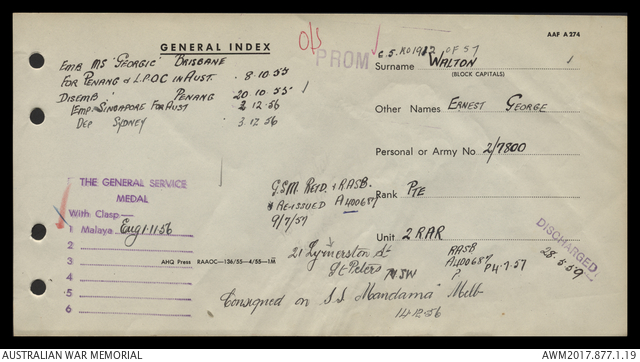 GENERAL INDEX
O/S
PROM
AAF A 274
EMB MS 'GEORGIC' BRISBANE
FOR PENANG & L.P.O.C IN AUST. 8.10.55
DISEMB PENANG 20.10.55
EMP. SINGAPORE FOR AUST 2 12.56
DEP SYDNEY 3.12.56
C.S. RO1982 OF 57
Surname WALTON
(BLOCK CAPITALS)
Other Names ERNEST GEORGE
Personal or Army No. 2/7800
Rank PTE
Unit 2 RAR
THE GENERAL SERVICE
MEDAL
With Clasp—
1 Malaya Eng 1.11.56
2
3
4
5
6
AHQ Press RAAOC—136/55—4/55—1M
G.S.M. RETD. & RASB.
RE-ISSUED A400687
9/7/57
21 St
St Peters NSW
RASB
A400687
P 4.7.57
?
DISCHARGED
28.5.59
Consigned on S.S "Mandama" Melb
14.12.56
AUSTRALIAN WAR MEMORIAL
AWM2017.877.1.19